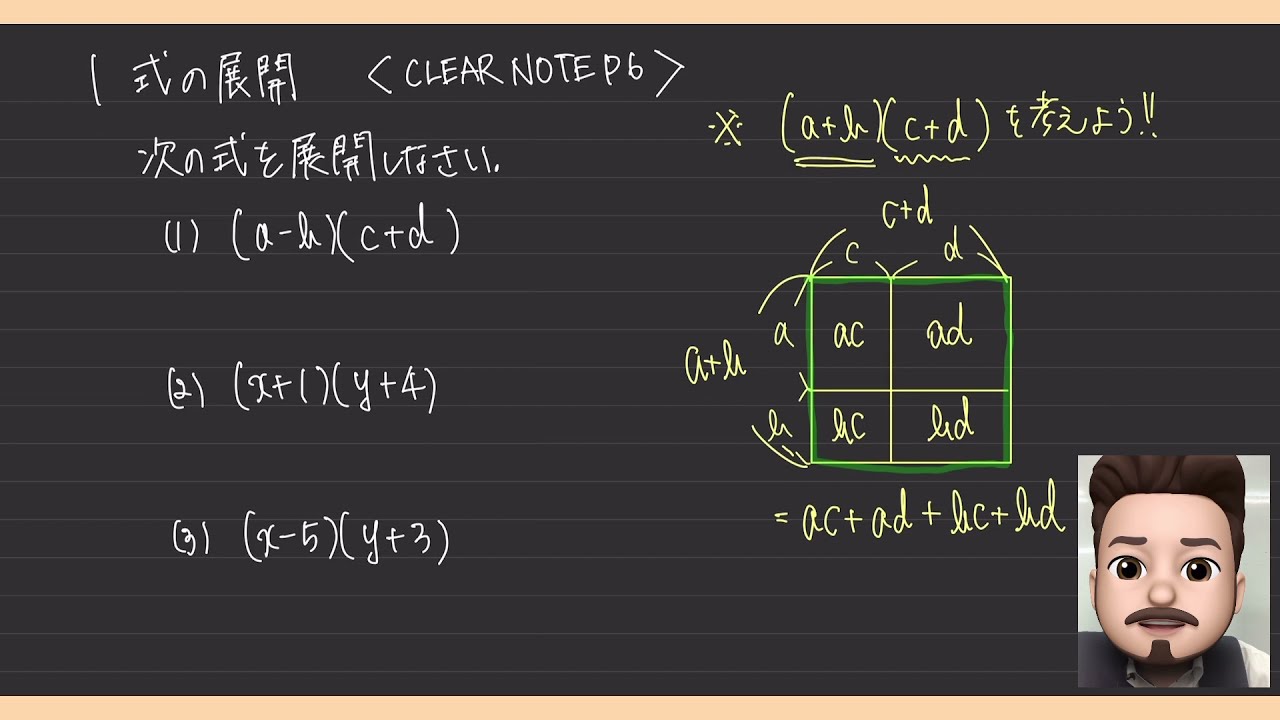 1 式の展開 <CLEAR NOTE P6>
次の式を展開しなさい.
(1) (a-b)(c+d)
(2) (x+1)(y+4)
(3) (x-5)(y+3)
※ (a+b)(c+d)を考えよう!!
c+d
c d
a ac ad
a+b
b bc bd
=ac+ad+bc+bd